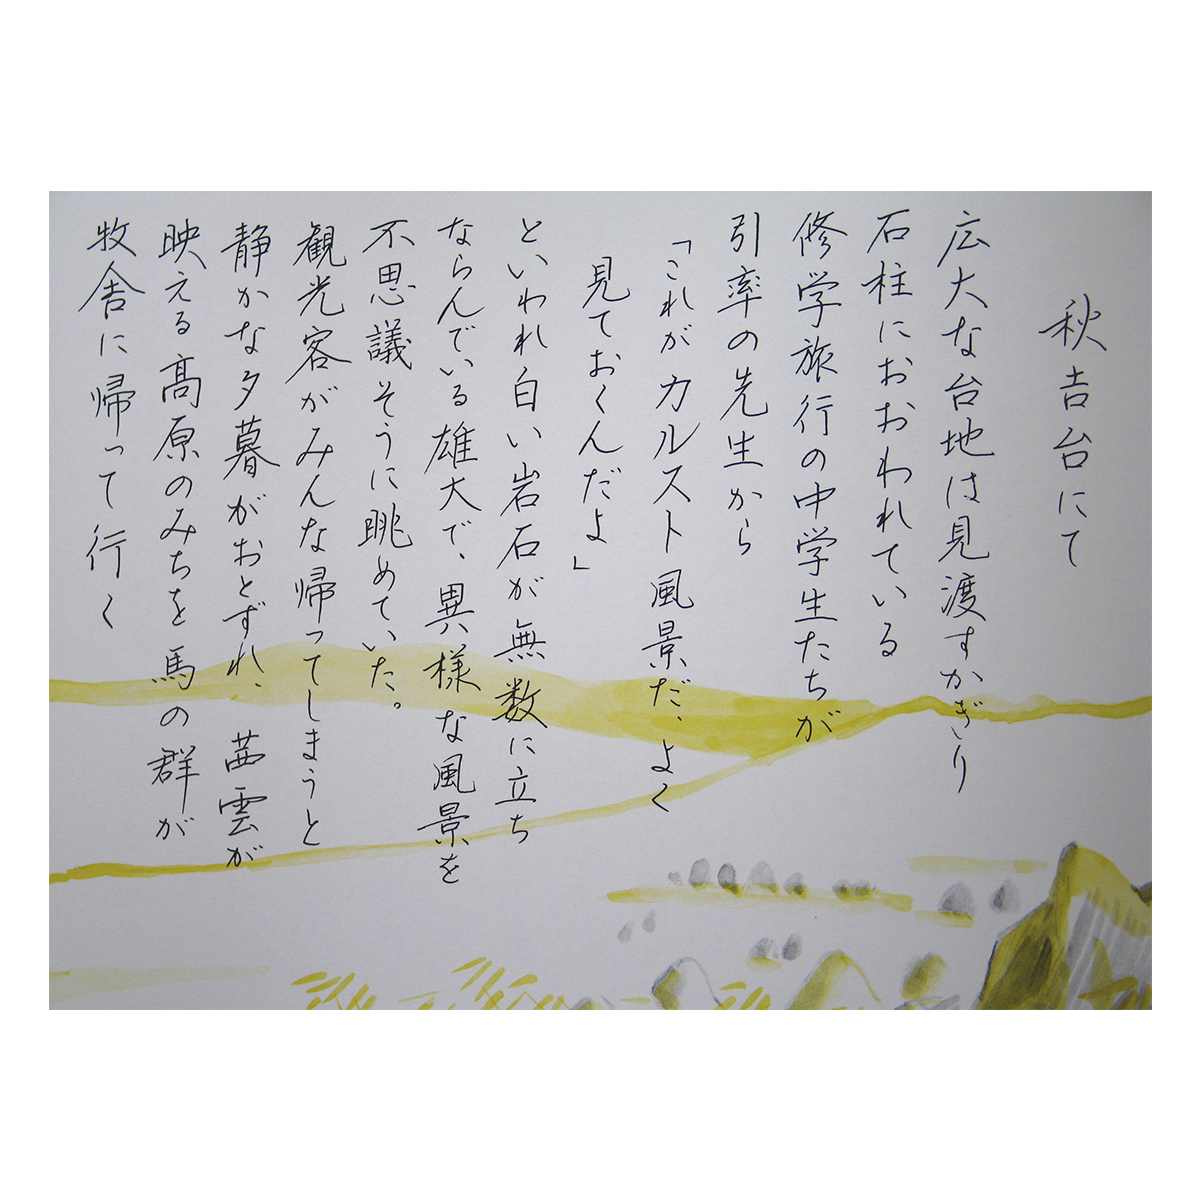 秋吉台にて
広大な台地は見渡すかぎり
石柱におおわれている
修学旅行の中学生たちが
引率の先生から
「これがカルスト風景だ、よく
見ておくんだよ」
といわれ白い岩石が無数に立ち
ならんでいる雄大で、異様な風景を
不思議そうに眺めていた。
観光客がみんな帰ってしまうと
静かな夕暮がおとずれ、茜雲が
映える高原のみちを馬の群が
牧舎に帰って行く